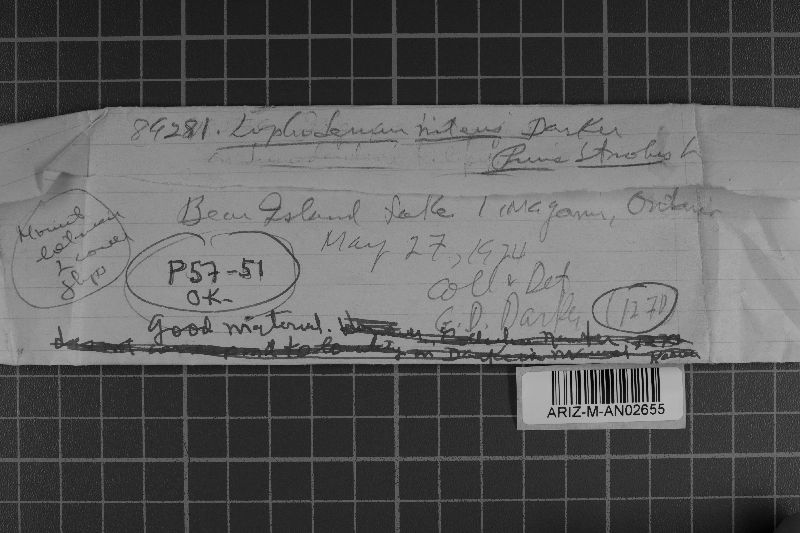 89281. Lophodermium nitens Darker
Pinus Strobus L
Bear Island Lake Timagami, Ontario
May 27, 1924
Coll & Det
G. D. Darker
1270
Mount
between
2 cover
slips
P57-51
OK-
Good material.
ARIZ-M-AN02655